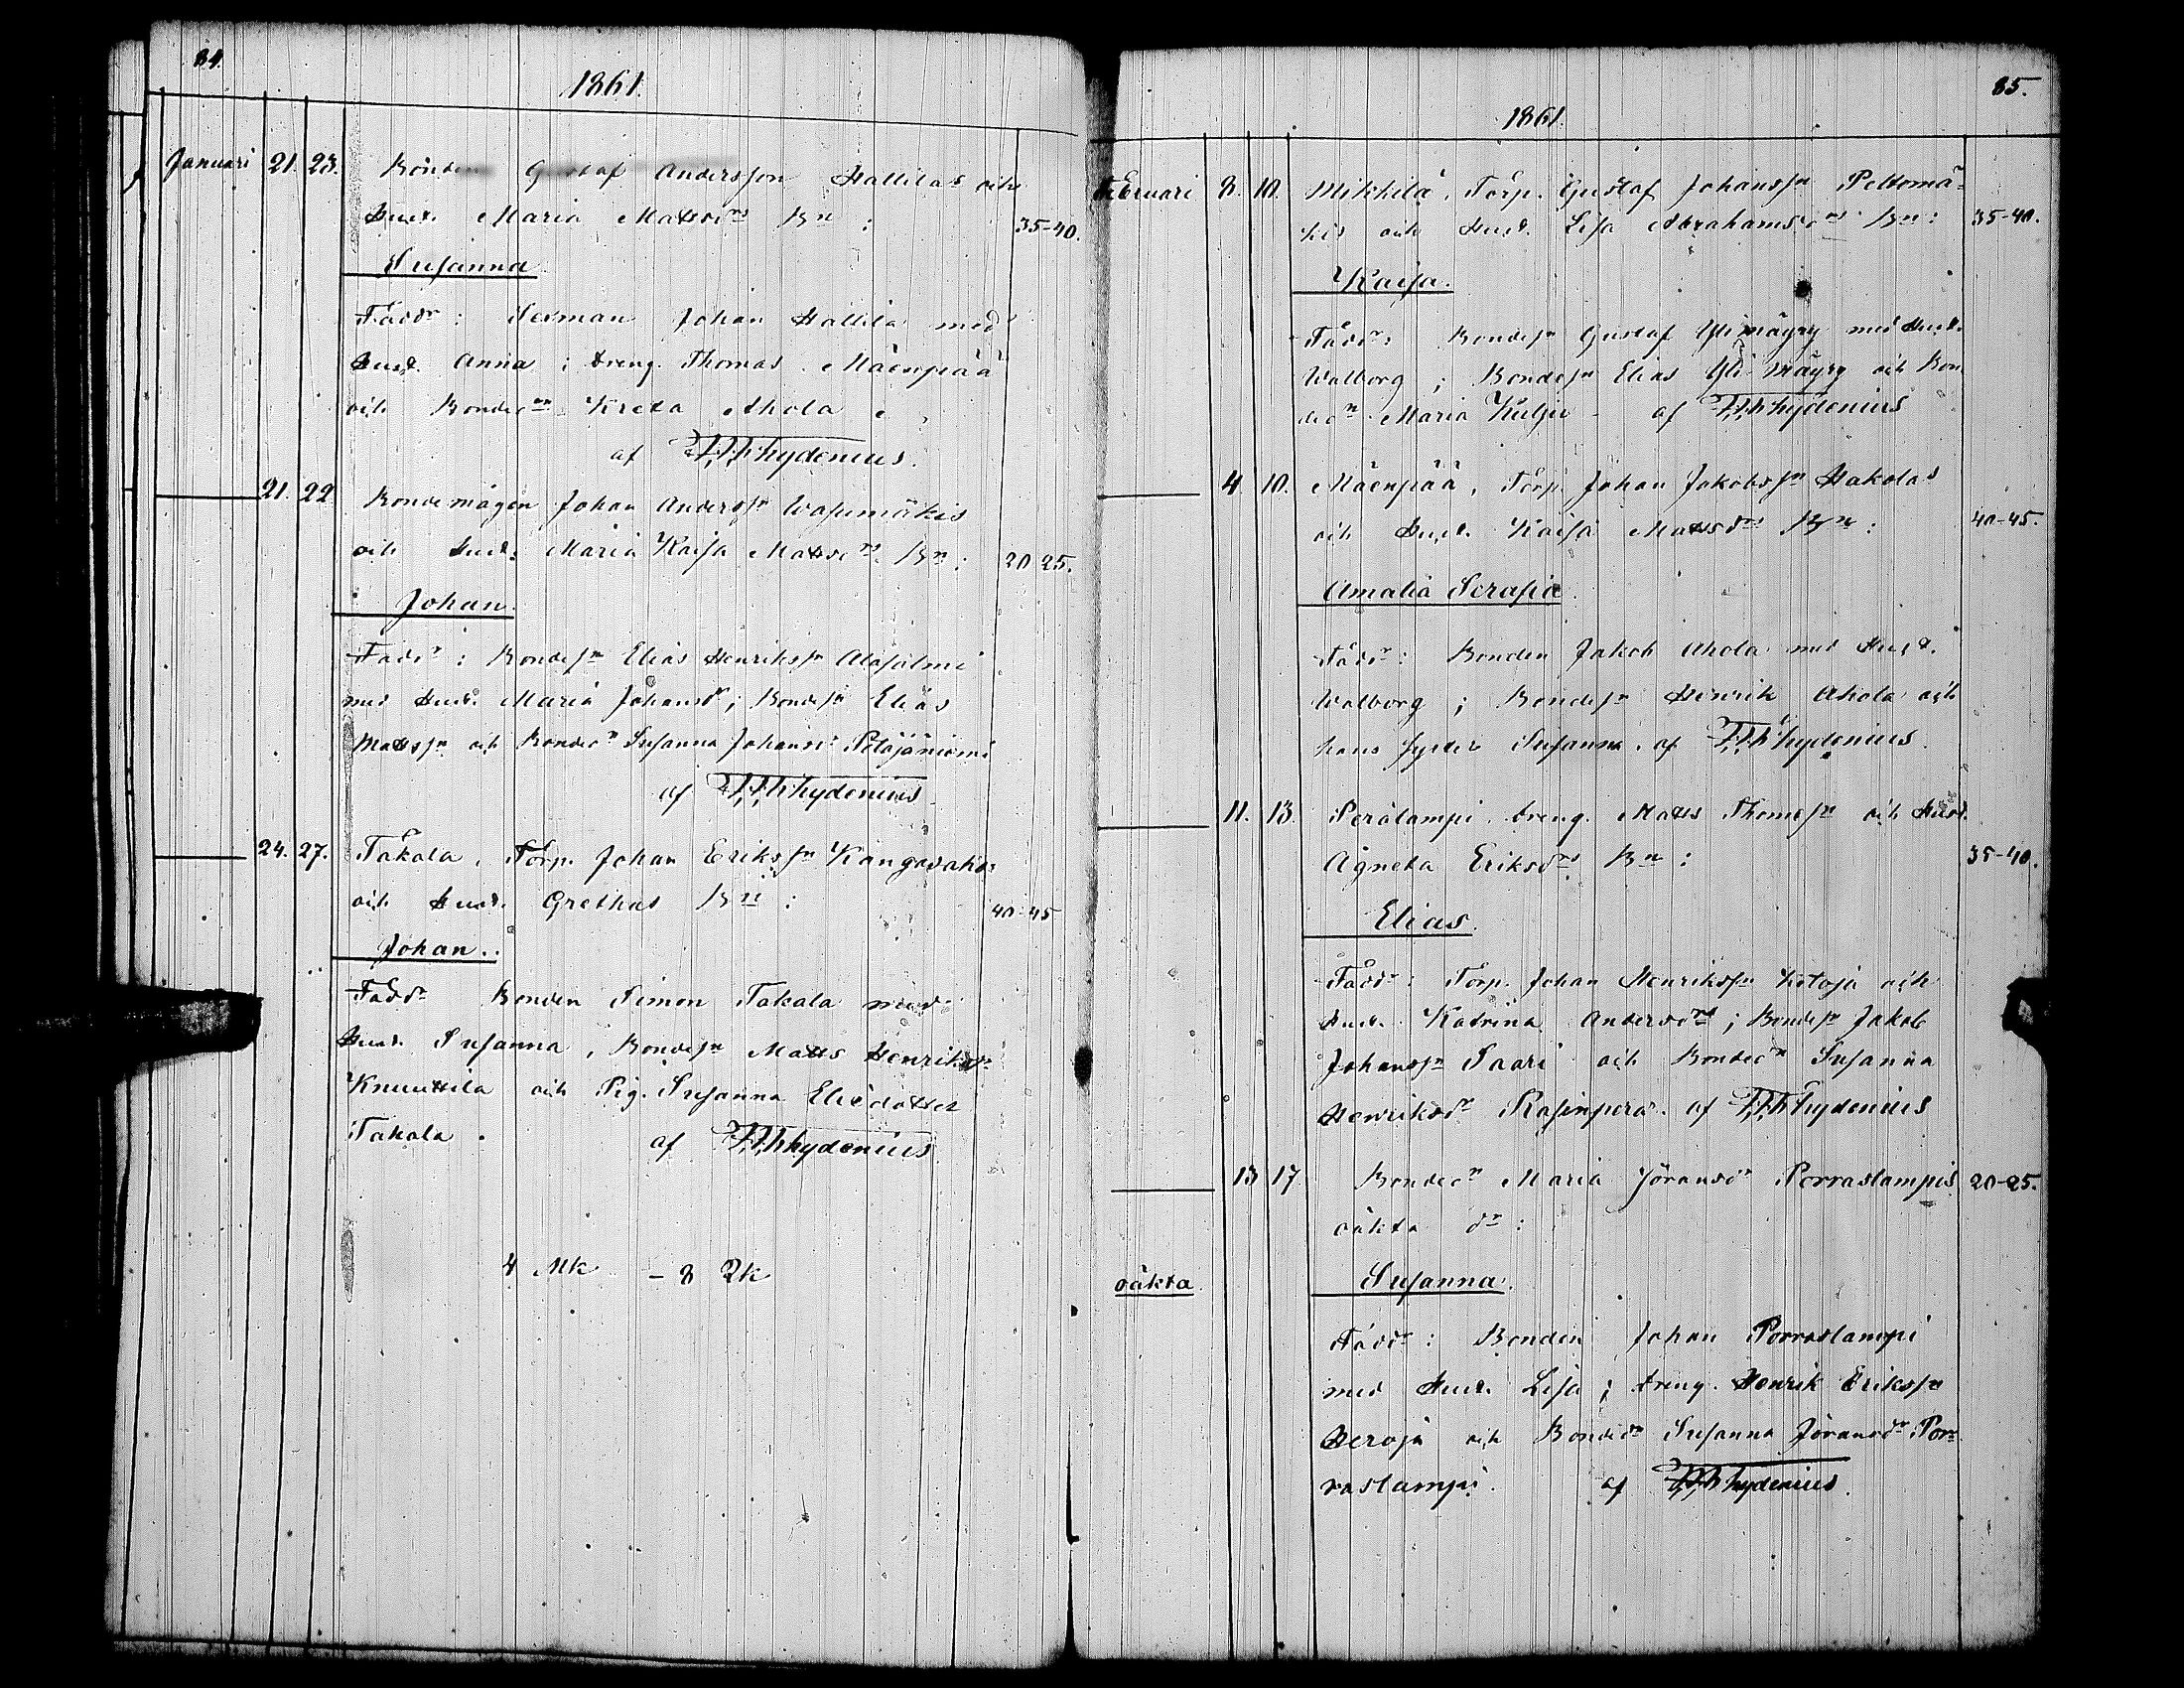 84.
1861.
Januari 21. 23. Bonden Gustaf Andersson Hallilas och
Hust. Maria Mattsdrs Bn : 35-40.
Susanna
Faddr: Sexman Johan Hallila med
Hust. Anna ; dreng. Thomas Mäenpää
och Bondedn Kreta Ahola
af FHhydenius.
21. 22 Bondemågen Johan Anderssn
och Hust. Maria Kaisa Mattsdrs Bn : 20 25.
Johan.
Faddr : Bondesn Elias Henrikssn Alasalmi
med Hust. Maria Johansdr ; Bondesn Elias
Mattssn och Bondedr Susanna Johansdr
af FHhydenius
24. 27. Takala, Torp. Johan Erikssn Kangasahos
och Hust. Grethas Bn : 40-45
Johan..
Faddr Bonden Simon Takala med
Hust. Susanna, Bondesn Matts Henrikssn
Knuuttila och Pig. Susanna Eliædotter
Takala. af FHhydenius
4 Mk - 8 Qk
85.
1861.
Februari 8. 10. Mikkilä, Torp. Gustaf Johanssn Peltomä-
kis och Hust. Lisa Abrahamsdrs Bn : 35-40.
Kaisa.
Faddr: Bondesn Gustaf Yli mäyry med Hust.
Walborg ; Bondesn Elias Yli Mäyry och Bon
dedn Maria Kuljo - af FHhydenius
4. 10. Mäenpää, Torp. Johan Jakobssn Hakolas
och Hust. Kaisa Mattsdrs Bn : 40-45.
Amalia Serafia.
Faddr: Bonden Jakob Ahola med Hust.
Walborg ; Bondesn Henrik Ahola och
hans syster Susanna. af FHhydenius.
11. 13. Perälampi. dreng. Matts Thomæsn och Hust.
Agneta Eriksdrs Bn : 35-40.
Elias.
Faddr : Torp. Johan Henrikssn Ketoja och
Hust. Katrina Andersdr ; Bondesn Jakob
Johanssn Saari och Bondedr Susanna
Henriksdr Rasinperä. af FHhydenius
13 17 Bondedn Maria Jöransdr Porraslampis 20-25.
oäkta dr :
oäkta. Susanna.
Faddr : Bonden Johan Porraslampi
med Hust. Lisa ; dreng. Henrik Erikssn
Heroja och Bondedr Susanna Jöransdr Por-
raslampi. af FHhydenius.